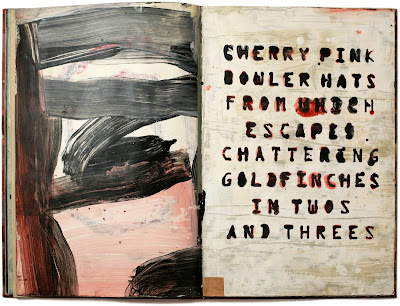 CHERRY PINK
BOWLER HATS
FROM WHICH
ESCAPES
CHATTERING
GOLDFINCHES
IN TWOS
AND THREES